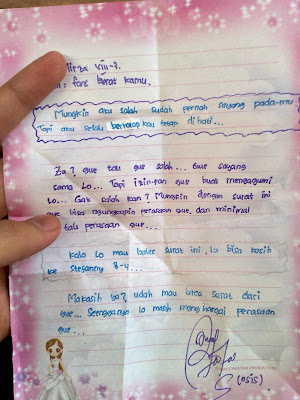 Mirza VIII-2.
: fans berat kamu.
Mungkin aku salah sudah pernah sayang pada-mu
Tapi aku selalu berharap kau tetap di hati...
Za? gue tau gue salah... Gue sayang
sama Lo... Tapi izin-kan gue buat mengagumi
Lo... Gak salah kan? Mungkin dengan surat ini
gue bisa ngungkapin perasaan gue, dan minimal
tau perasaan gue...
Kalo Lo mau bales surat ini, Lo bisa kasih
ke Stefanny 8-4...
Makasih ya? udah mau baca surat dari
gue... Seenggaknya Lo masih menghargai perasaan
gue...
(OSIS).